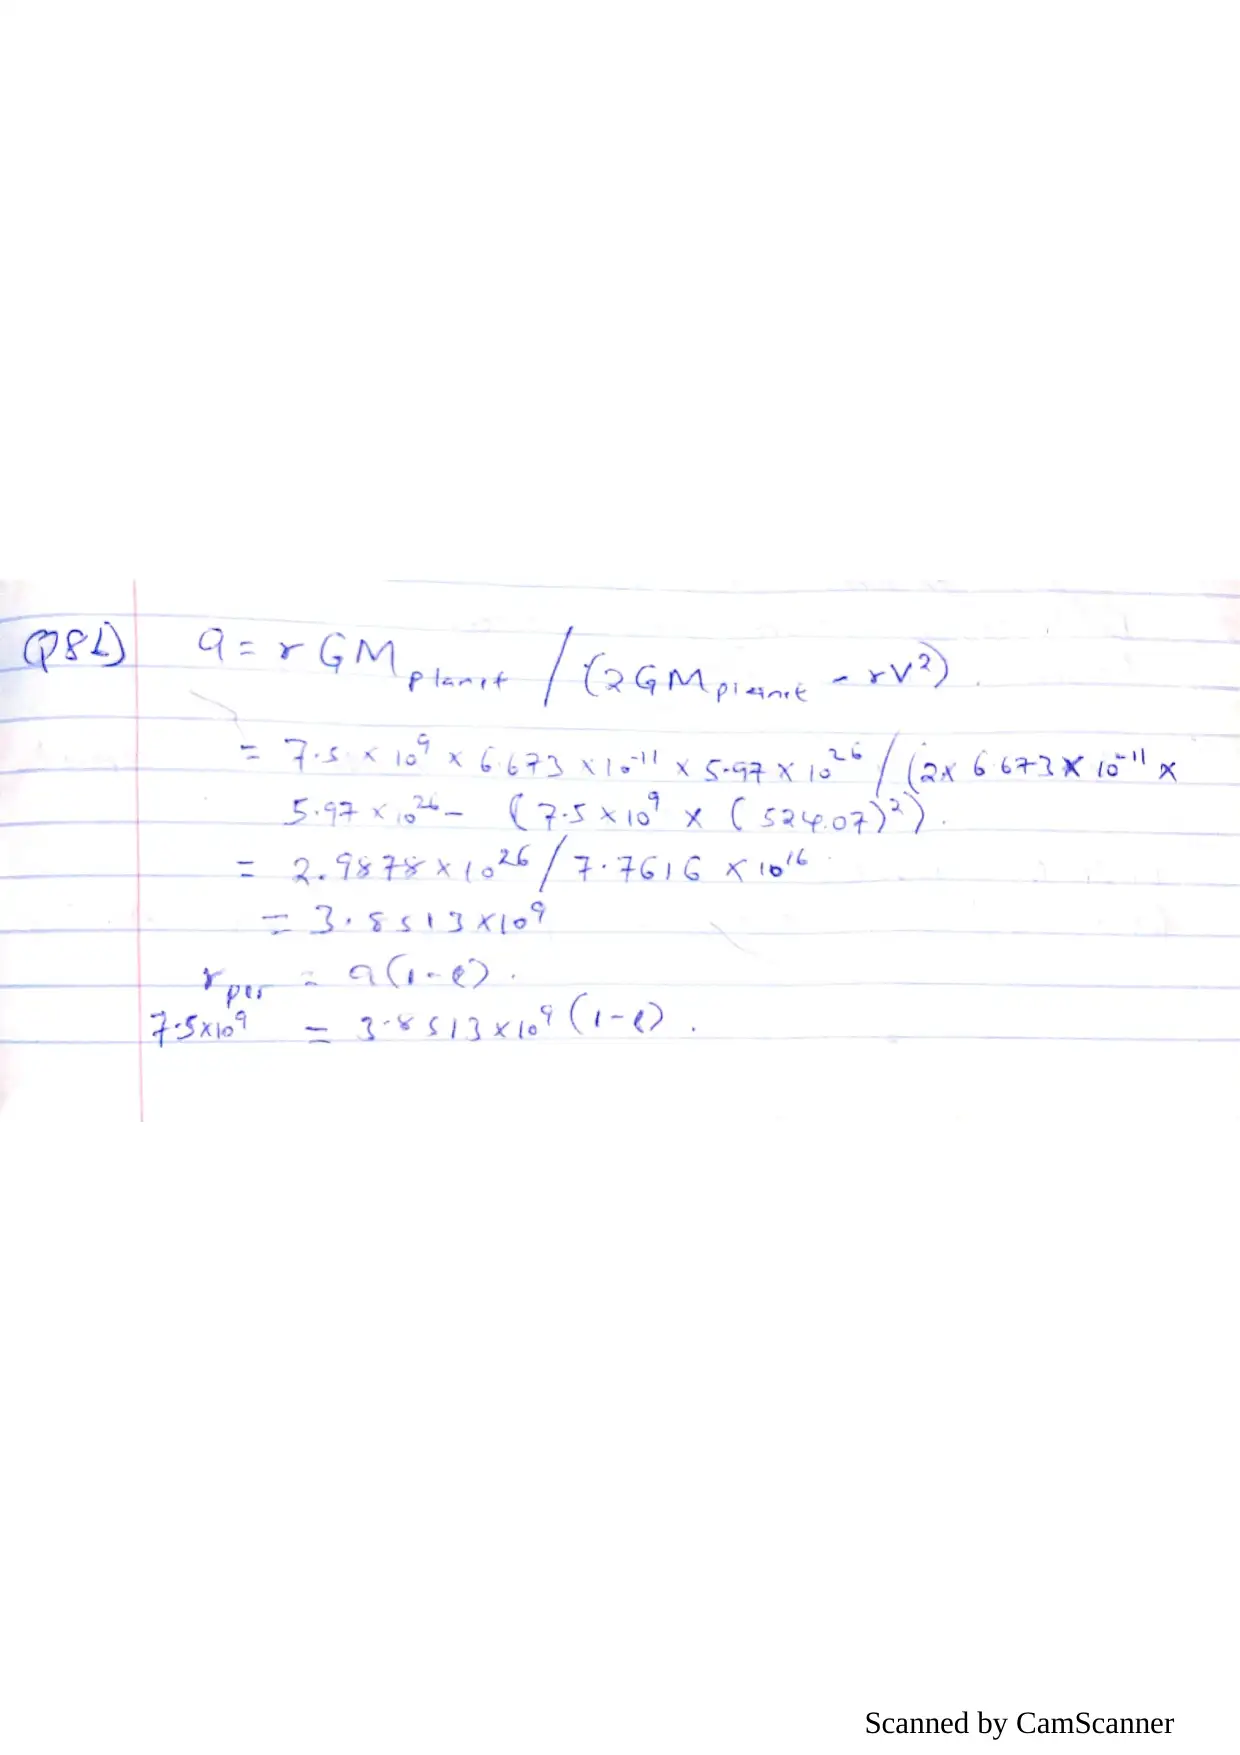 Q8b) a = r GM planet / (2GM planet - rv²).
= 7.5 × 10⁹ × 6.673 × 10⁻¹¹ × 5.97 × 10²⁶ / (2 × 6.673 × 10⁻¹¹ ×
5.97 × 10²⁶ - (7.5 × 10⁹ × (524.07)²).
= 2.9878 × 10²⁶ / 7.7616 × 10¹⁶
= 3.8513 × 10⁹
r per = a(1-e).
7.5×10⁹ = 3.8513 × 10⁹ (1-e).
Scanned by CamScanner